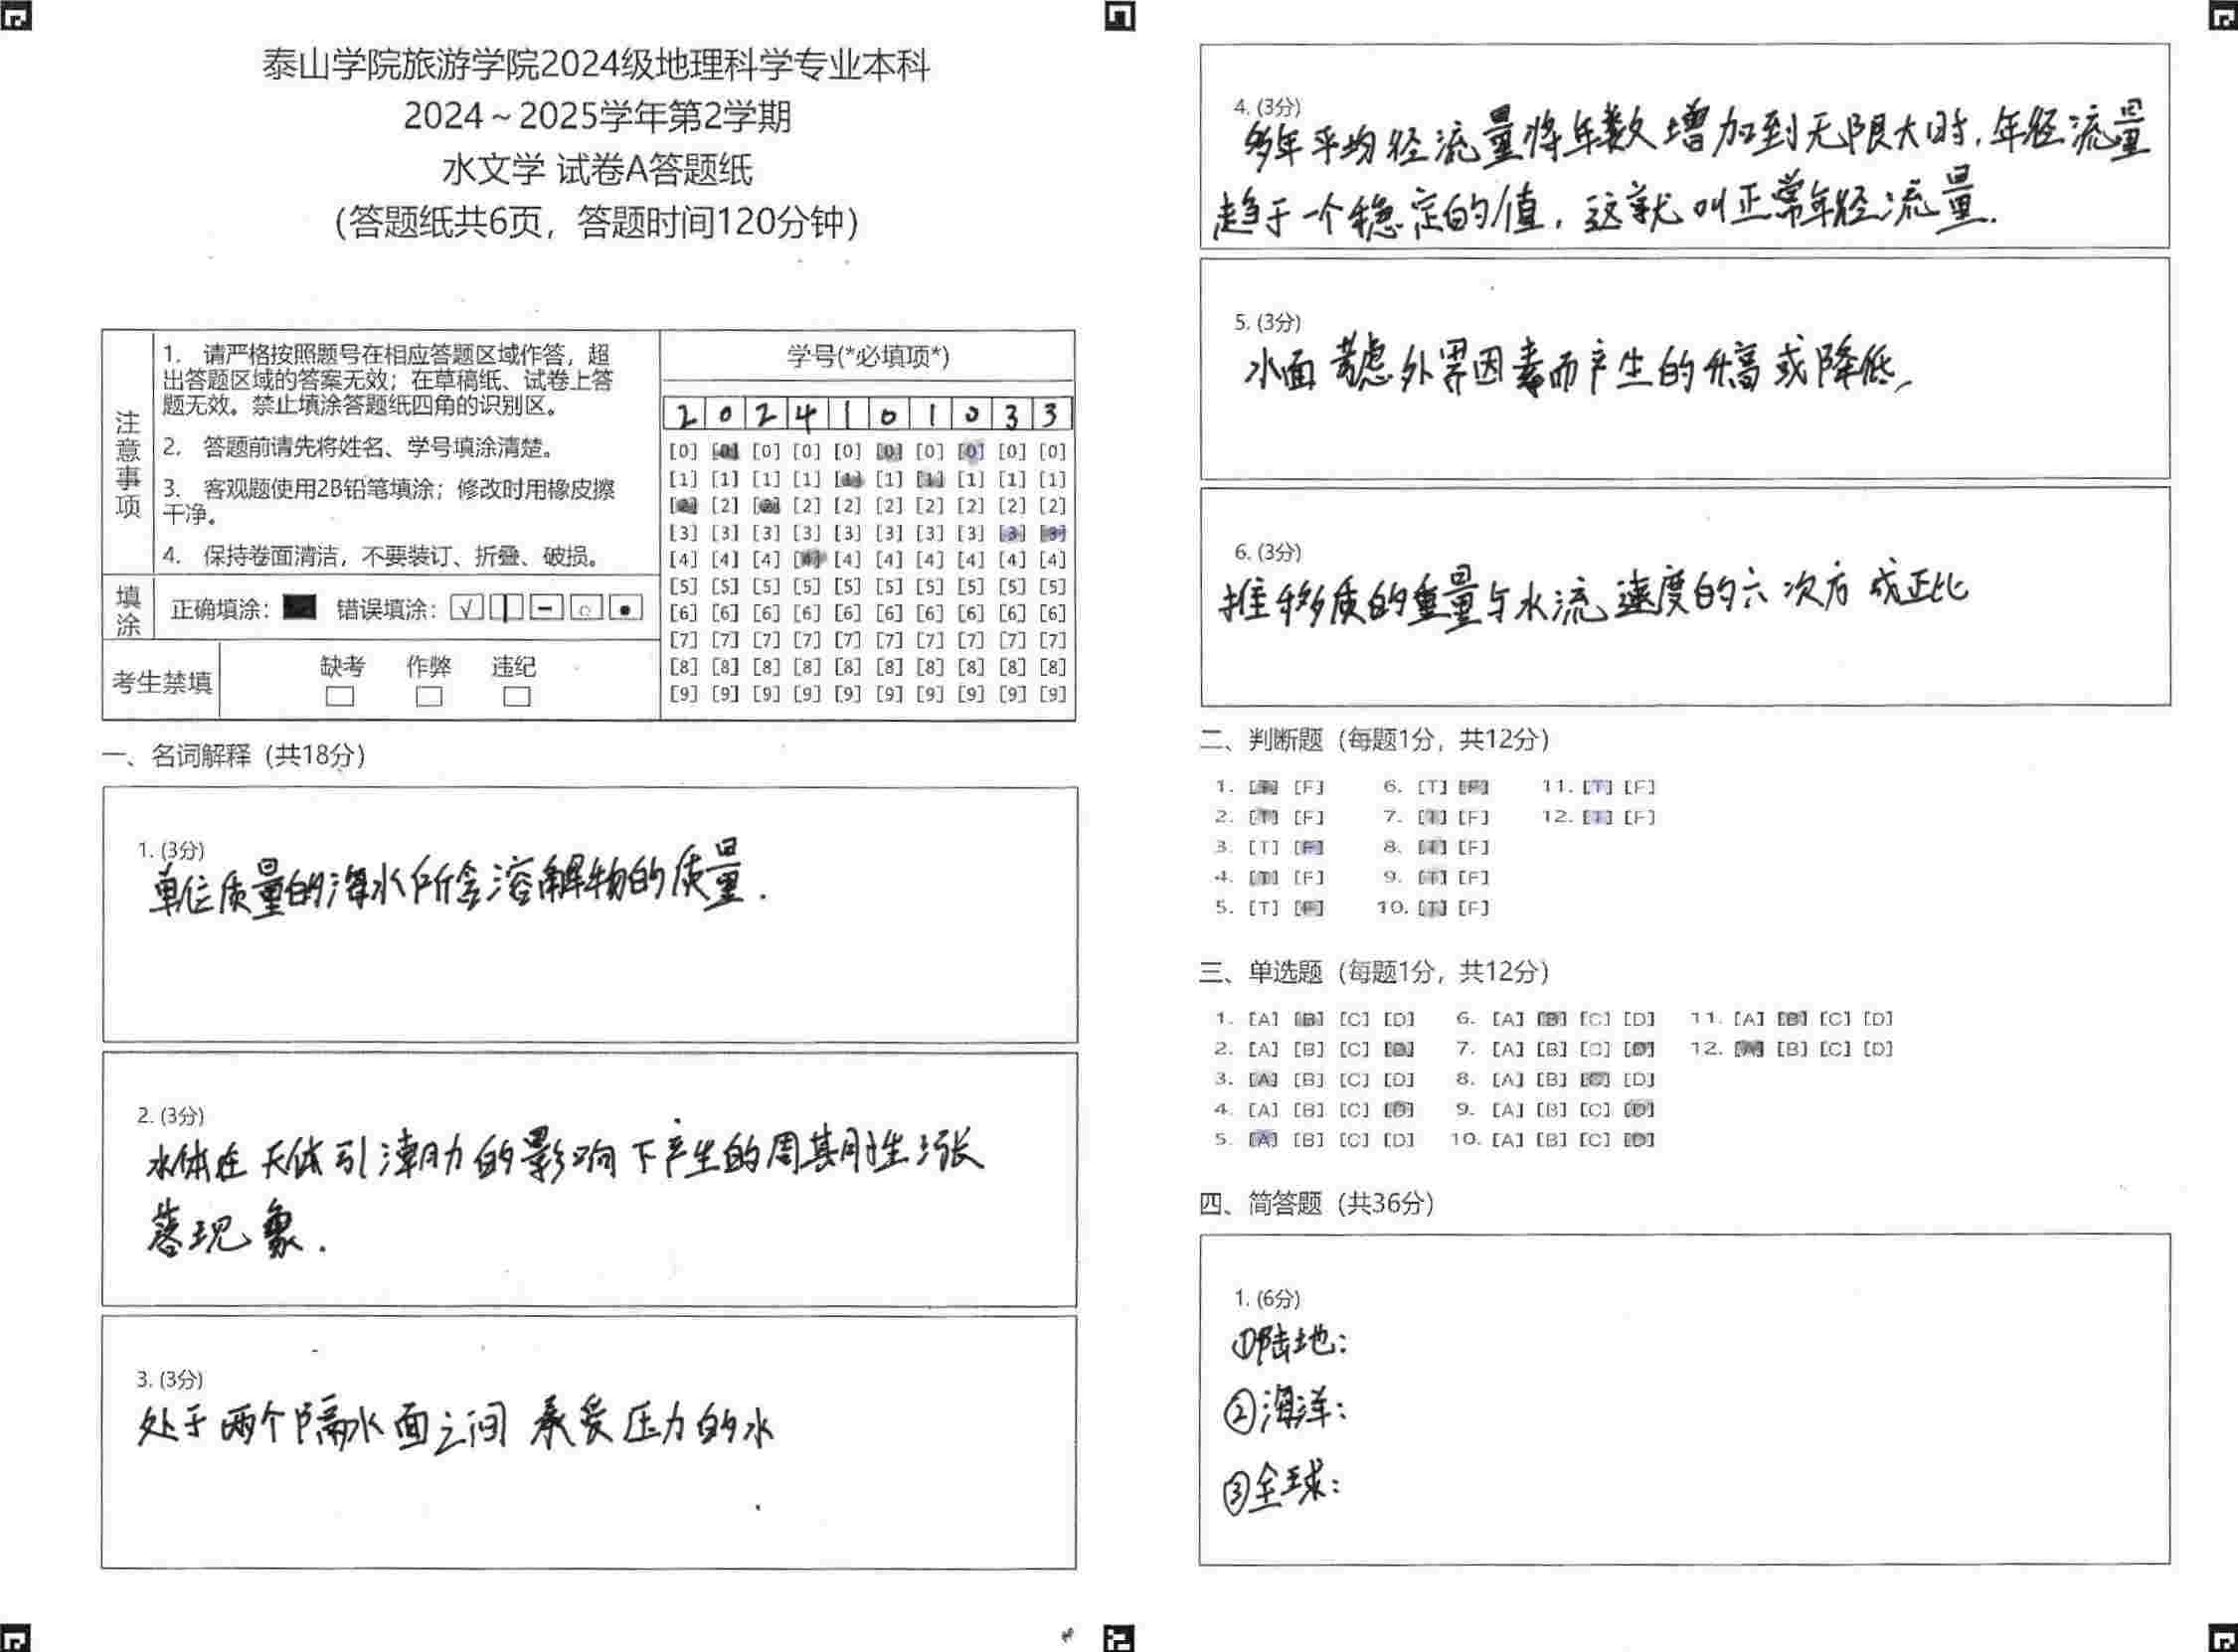 泰山学院旅游学院2024级地理科学专业本科
2024～2025学年第2学期
水文学 试卷A答题纸
（答题纸共6页，答题时间120分钟）
注意事项
1. 请严格按照题号在相应答题区域作答，超
出答题区域的答案无效；在草稿纸、试卷上答
题无效。禁止填涂答题纸四角的识别区。
2. 答题前请先将姓名、学号填涂清楚。
3. 客观题使用2B铅笔填涂；修改时用橡皮擦
干净。
4. 保持卷面清洁，不要装订、折叠、破损。
填涂
正确填涂： 错误填涂：
考生禁填
缺考 作弊 违纪
学号(*必填项*)
2 0 2 4 1 0 1 0 3 3
[0] [0] [0] [0] [0] [0] [0] [0] [0] [0]
[1] [1] [1] [1] [1] [1] [1] [1] [1] [1]
[2] [2] [2] [2] [2] [2] [2] [2] [2] [2]
[3] [3] [3] [3] [3] [3] [3] [3] [3] [3]
[4] [4] [4] [4] [4] [4] [4] [4] [4] [4]
[5] [5] [5] [5] [5] [5] [5] [5] [5] [5]
[6] [6] [6] [6] [6] [6] [6] [6] [6] [6]
[7] [7] [7] [7] [7] [7] [7] [7] [7] [7]
[8] [8] [8] [8] [8] [8] [8] [8] [8] [8]
[9] [9] [9] [9] [9] [9] [9] [9] [9] [9]
一、名词解释（共18分）
1. (3分)
单位质量的海水所含溶解物的质量.
2. (3分)
水体在天体引潮力的影响下产生的周期性涨
落现象.
3. (3分)
处于两个隔水面之间承受压力的水
4. (3分)
多年平均径流量将年数增加到无限大时,年径流量
趋于一个稳定的值，这就叫正常年径流量.
5. (3分)
水面考虑外界因素而产生的升高或降低,
6. (3分)
推移质的重量与水流速度的六次方成正比
二、判断题（每题1分，共12分）
1. [T] [F] 6. [T] [F] 11. [T] [F]
2. [T] [F] 7. [T] [F] 12. [T] [F]
3. [T] [F] 8. [T] [F]
4. [T] [F] 9. [T] [F]
5. [T] [F] 10. [T] [F]
三、单选题（每题1分，共12分）
1. [A] [B] [C] [D] 6. [A] [B] [C] [D] 11. [A] [B] [C] [D]
2. [A] [B] [C] [D] 7. [A] [B] [C] [D] 12. [A] [B] [C] [D]
3. [A] [B] [C] [D] 8. [A] [B] [C] [D]
4. [A] [B] [C] [D] 9. [A] [B] [C] [D]
5. [A] [B] [C] [D] 10. [A] [B] [C] [D]
四、简答题（共36分）
1. (6分)
①陆地：
②海洋：
③全球：